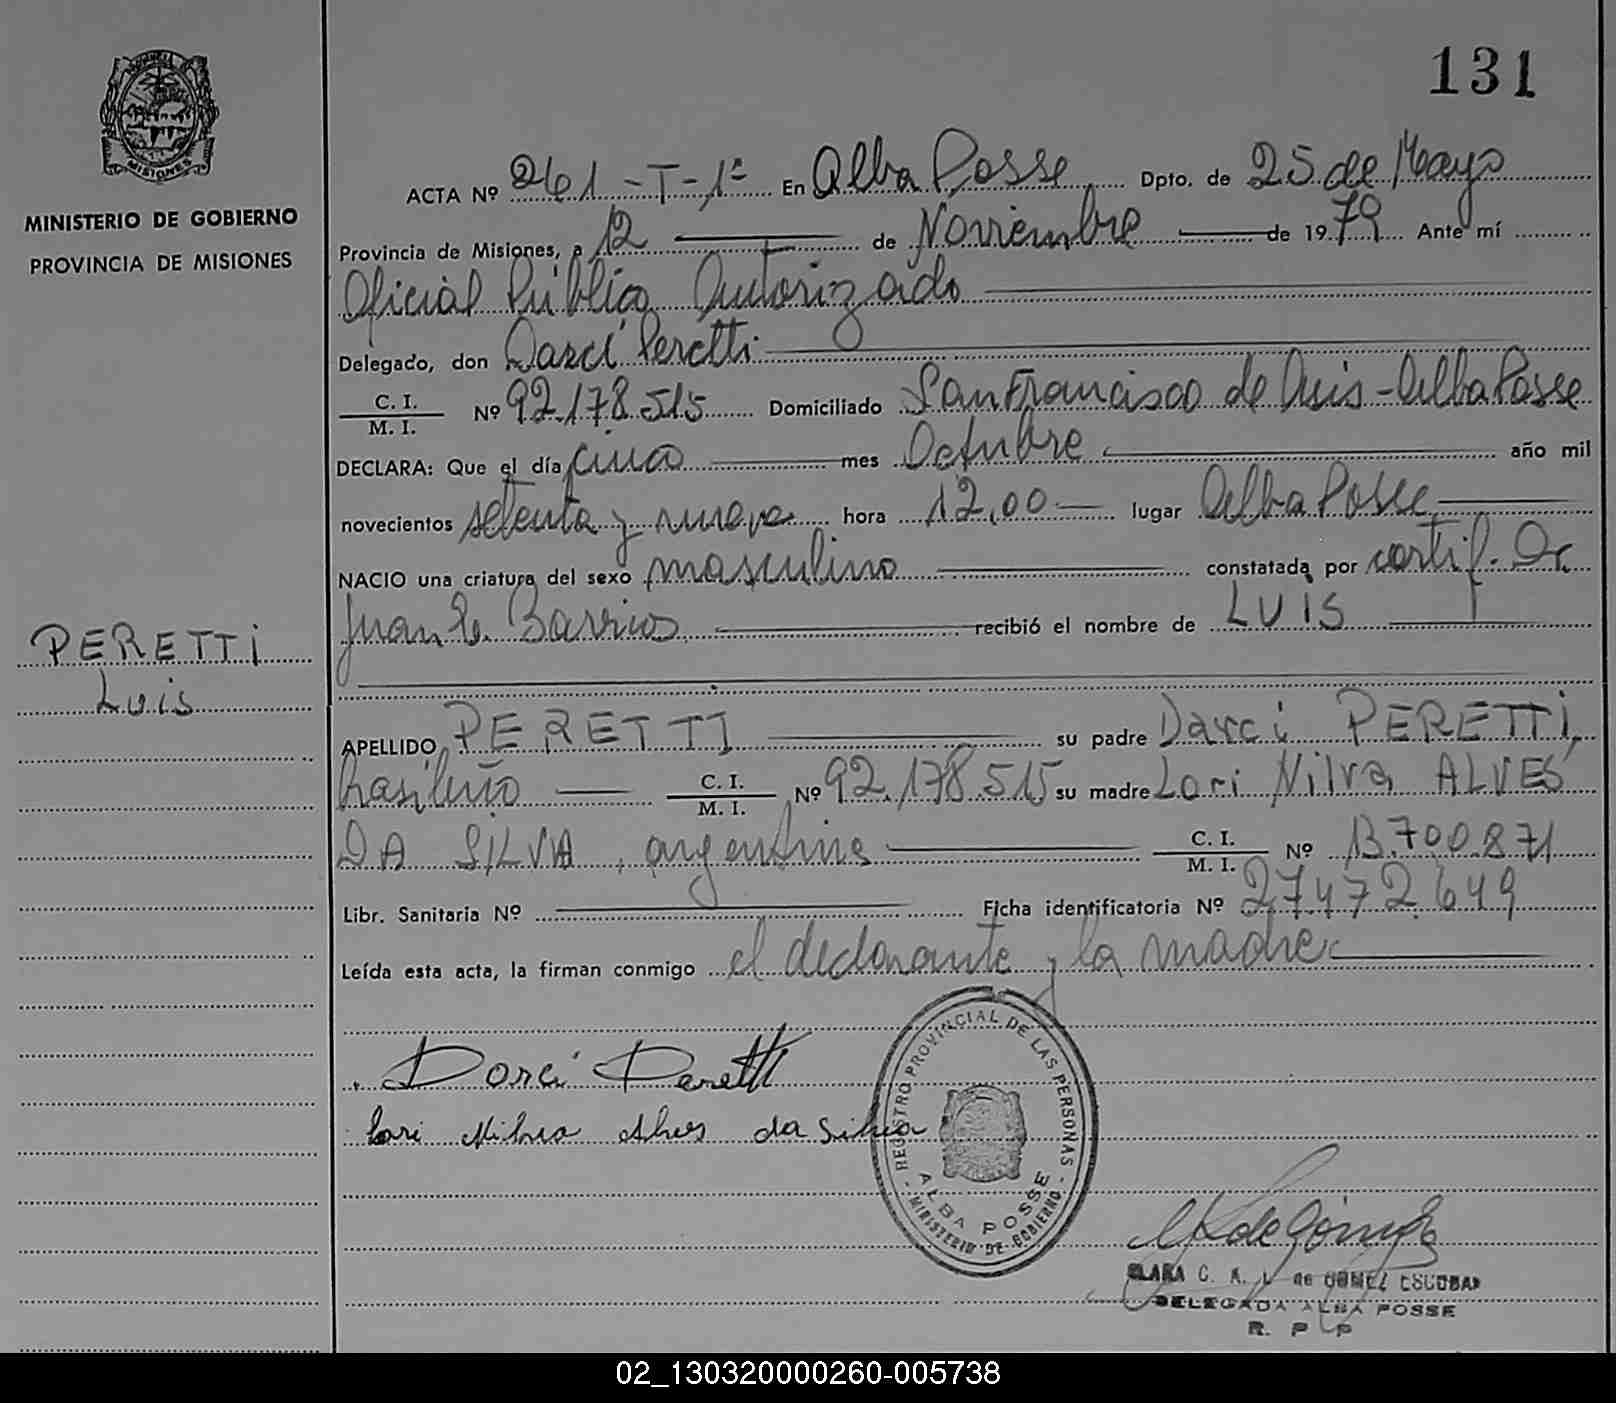 131
MISIONES
MINISTERIO DE GOBIERNO
PROVINCIA DE MISIONES
PERETTI
Luis
ACTA Nº 261 - T - 1º En Alba Posse Dpto. de 25 de Mayo
Provincia de Misiones, a 12 de Noviembre de 1979 Ante mí
Oficial Público Autorizado
Delegado, don Darci Peretti
C. I. / M. I. Nº 92.178.515 Domiciliado San Francisco de Asis - Alba Posse
DECLARA: Que el día cinco mes Octubre año mil
novecientos setenta y nueve hora 12,00 lugar Alba Posse
NACIO una criatura del sexo masculino constatada por certif. Dr.
Juan Barrios recibió el nombre de LUIS
APELLIDO PERETTI su padre Darci PERETTI,
brasileño C. I. / M. I. Nº 92.178.515 su madre Lori Nilva ALVES
DA SILVA, argentina C. I. / M. I. Nº 13.700.871
Libr. Sanitaria Nº Ficha identificatoria Nº 27.472.649
Leída esta acta, la firman conmigo el declarante y la madre
Darci Peretti
Lori Nilva Alves da Silva
REGISTRO PROVINCIAL DE LAS PERSONAS
ALBA POSSE
- MINISTERIO DE GOBIERNO -
CLARA C. de GOMEZ ESCOBAR
DELEGADA ALBA POSSE
R. P P
02_130320000260-005738